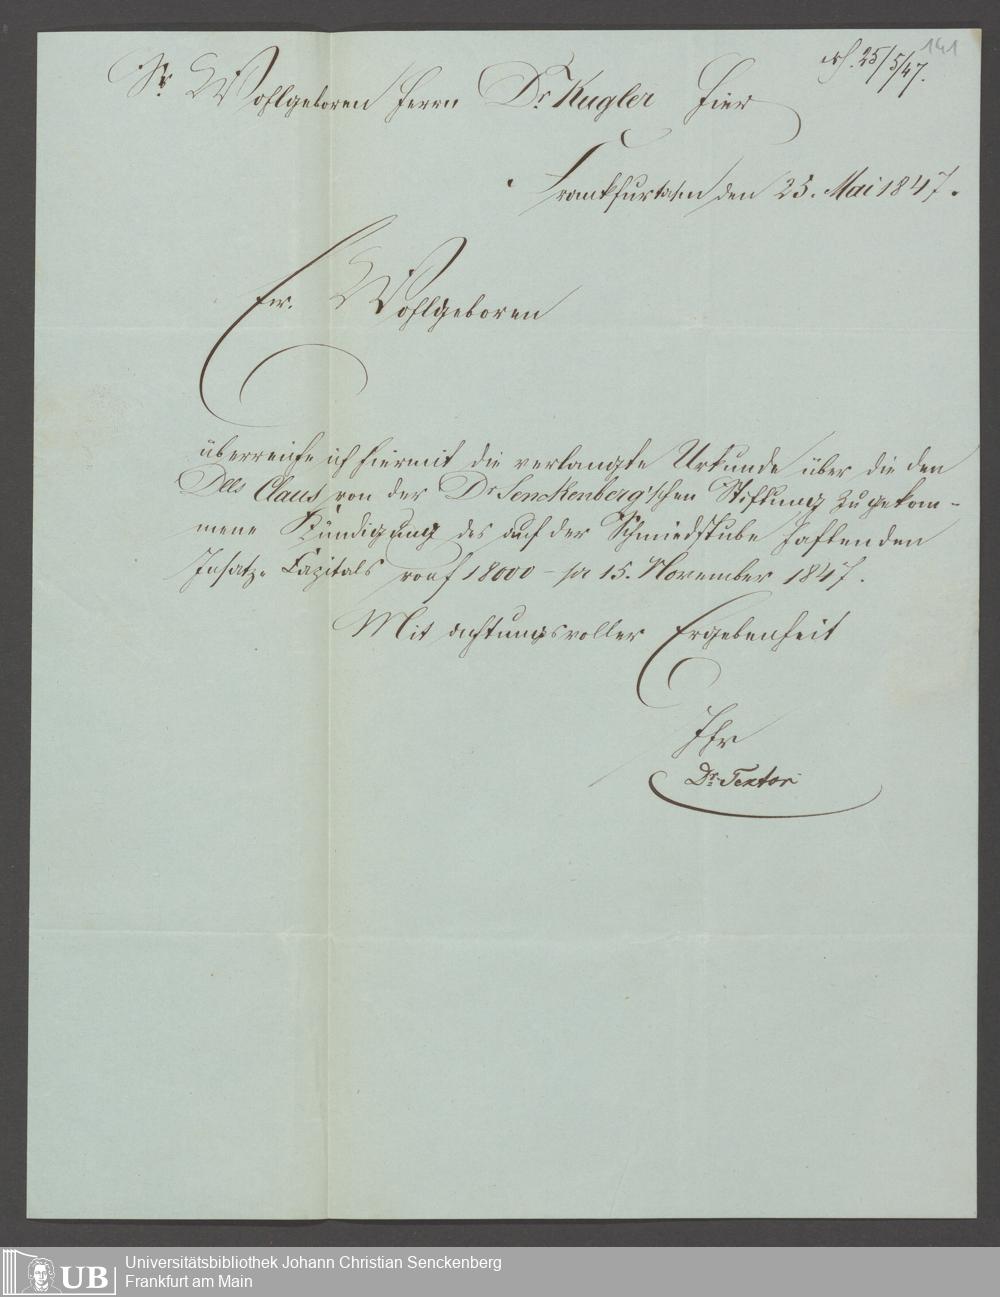 141
erh. 25/5/47.
Sr. Wohlgeboren Herrn Dr. Kugler Hier
Frankfurt a/m den 25. Mai 1847.
Ew. Wohlgeboren
überreiche ich hiermit die verlangte Urkunde über die den
Dlles Claus von der Dr. Senckenberg'schen Stiftung zugekom-
mene Kündigung des auf der Schmiedstube haftenden
Insatz-Capitals von f 18000 – pr 15. November 1847.
Mit achtungsvoller Ergebenheit
Ihr
Dr. Textor
UB
Universitätsbibliothek Johann Christian Senckenberg
Frankfurt am Main